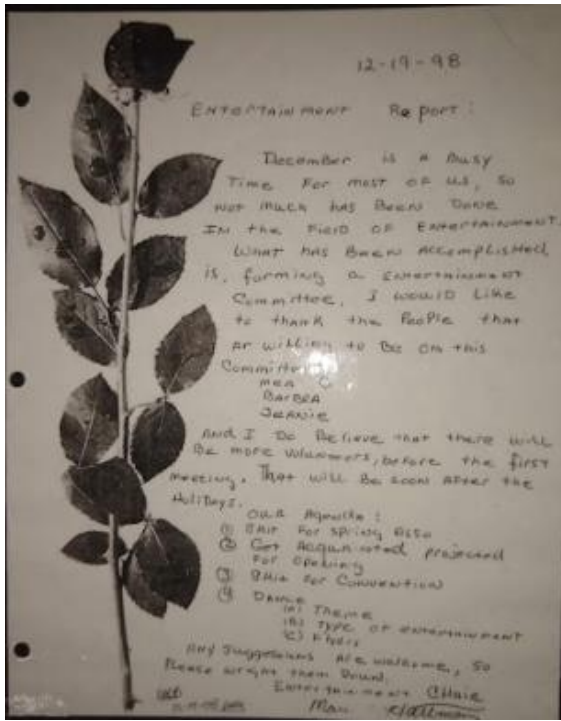 12-19-98
ENTERTAINMENT Report:
December is a Busy
Time For most of us, so
not much has Been Done
IN the Field of Entertainment.
What has Been Accomplished
is, forming a entertainment
Committee, I would Like
to thank the People that
ar willing to Be on this
Committee
BarbRA
JEANIE
And I Do Believe that there will
Be more volunteers, before the first
meeting. That will Be soon After the
Holidays.
our Agenda:
① Skit For spring
② Get Acquainted projected
For opening
③ Skit For Convention
④ Dance
(A) Theme
(B) Type of entertainment
(C)
Any suggestions Are welcome, so
Please wright them Down.
Entertainment CHair